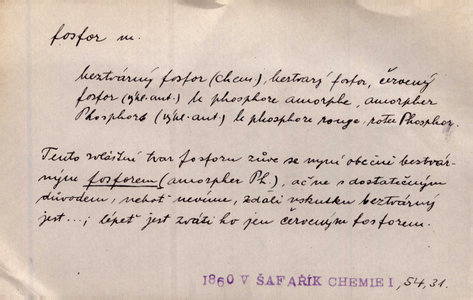 fosfor m.
beztvárný fosfor (chem.), beztvarý fosfor, červený
fosfor (výkl.-ant.) le phosphore amorphe, amorpher
Phosphor (výkl.-ant.) le phosphore rouge, roter Phosphor.
Tento zvláštní tvar fosforu zůve se nyní obecně beztvár-
ným fosforem (amorpher Ph.), ač ne s dostatečným
důvodem, neboť nevíme, zdali vskutku beztvárný
jest...; lépeť jest zváti ho jen červeným fosforem.
1860 V ŠAFAŘÍK CHEMIE I, 54, 31.